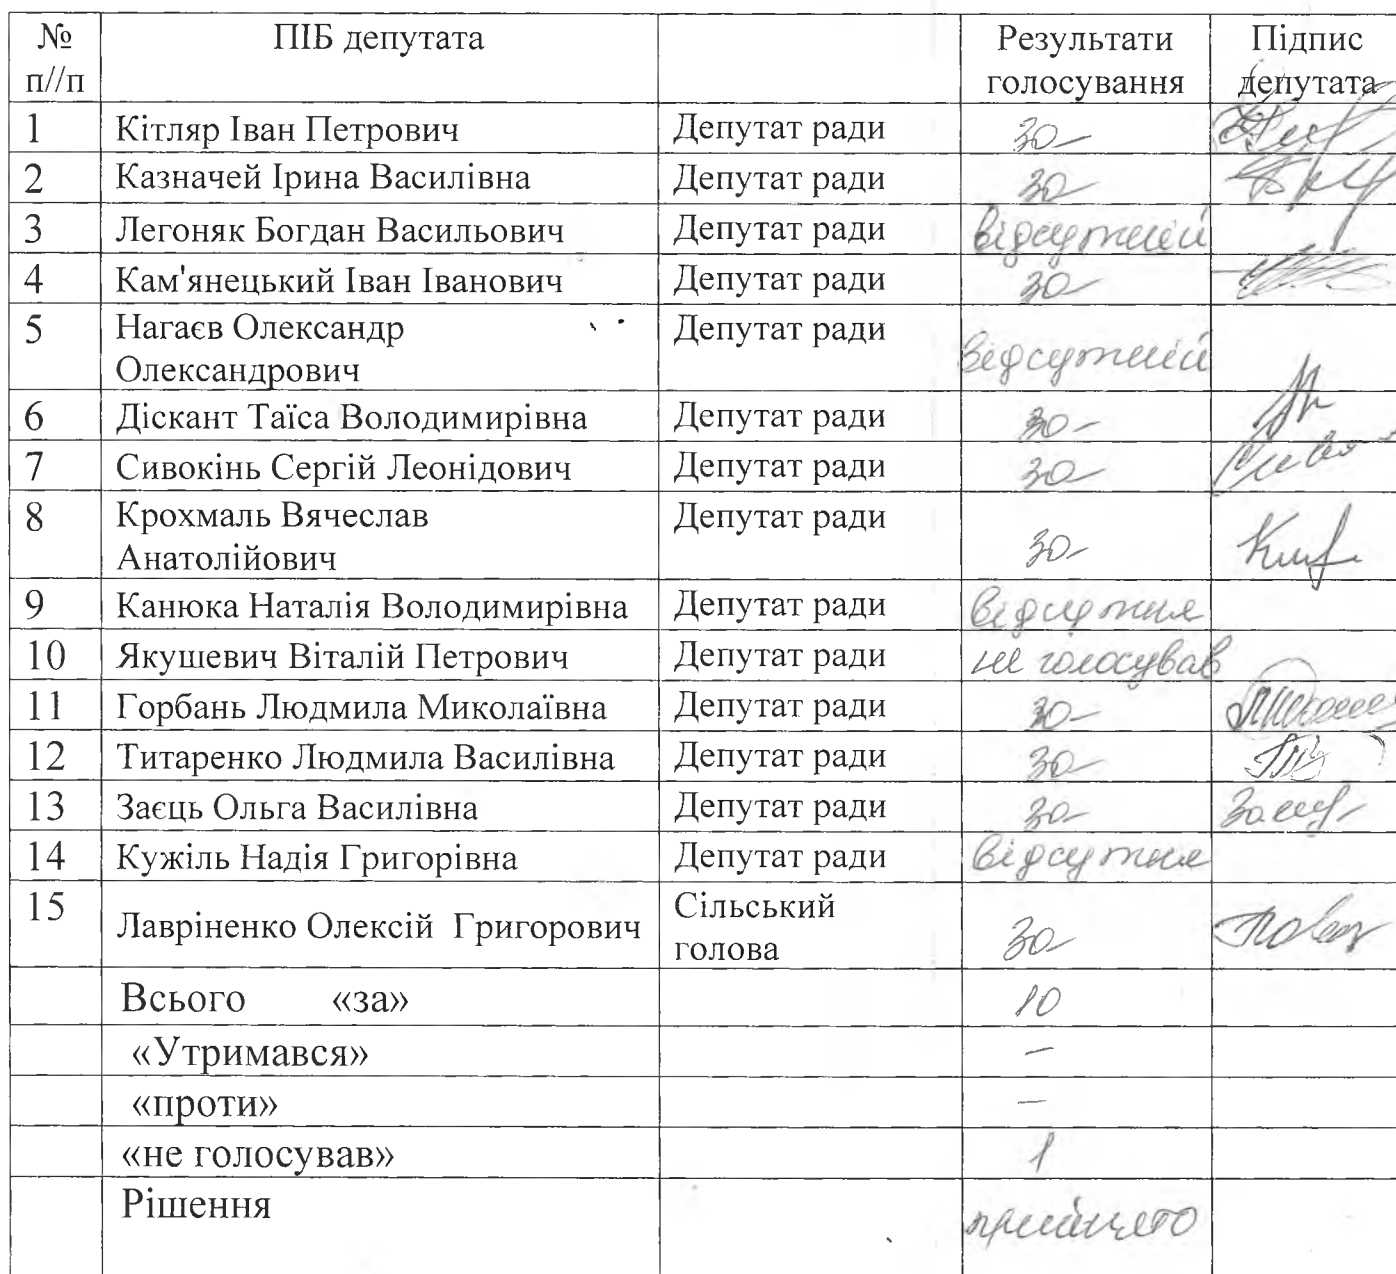 № ПІБ депутата Результати Підпис
п//п голосування депутата
1 Кітляр Іван Петрович Депутат ради за
2 Казначей Ірина Василівна Депутат ради за
3 Легоняк Богдан Васильович Депутат ради відсутній
4 Кам'янецький Іван Іванович Депутат ради за
5 Нагаєв Олександр Депутат ради відсутній
Олександрович
6 Діскант Таїса Володимирівна Депутат ради за
7 Сивокінь Сергій Леонідович Депутат ради за
8 Крохмаль Вячеслав Депутат ради за
Анатолійович
9 Канюка Наталія Володимирівна Депутат ради відсутня
10 Якушевич Віталій Петрович Депутат ради не голосував
11 Горбань Людмила Миколаївна Депутат ради за
12 Титаренко Людмила Василівна Депутат ради за
13 Заєць Ольга Василівна Депутат ради за
14 Кужіль Надія Григорівна Депутат ради відсутня
15 Лавріненко Олексій Григорович Сільський за
голова
Всього «за» 10
«Утримався» –
«проти» –
«не голосував» 1
Рішення прийнято